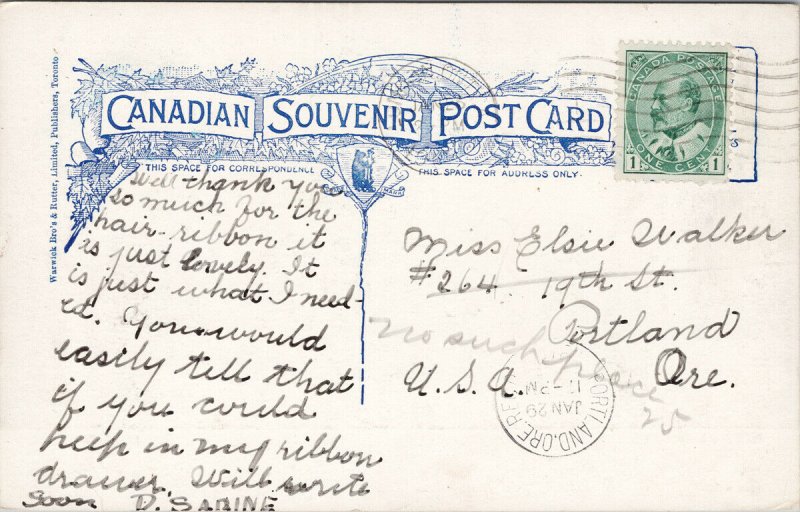 CANADIAN SOUVENIR POST CARD
THIS SPACE FOR CORRESPONDENCE
THIS SPACE FOR ADDRESS ONLY.
Warwick Bro's & Rutter, Limited, Publishers, Toronto
CANADA POSTAGE
1 ONE CENT 1
Well thank you
so much for the
hair-ribbon it
is just lovely. It
is just what I need-
ed. You would
easily tell that
if you could
peep in my ribbon
drawer. Will write
soon D. SABINE
Miss Elsie Walker
#264 19th St.
Portland
U.S.A. Ore.
no such place
25
PORTLAND, ORE.
JAN 29
11-PM